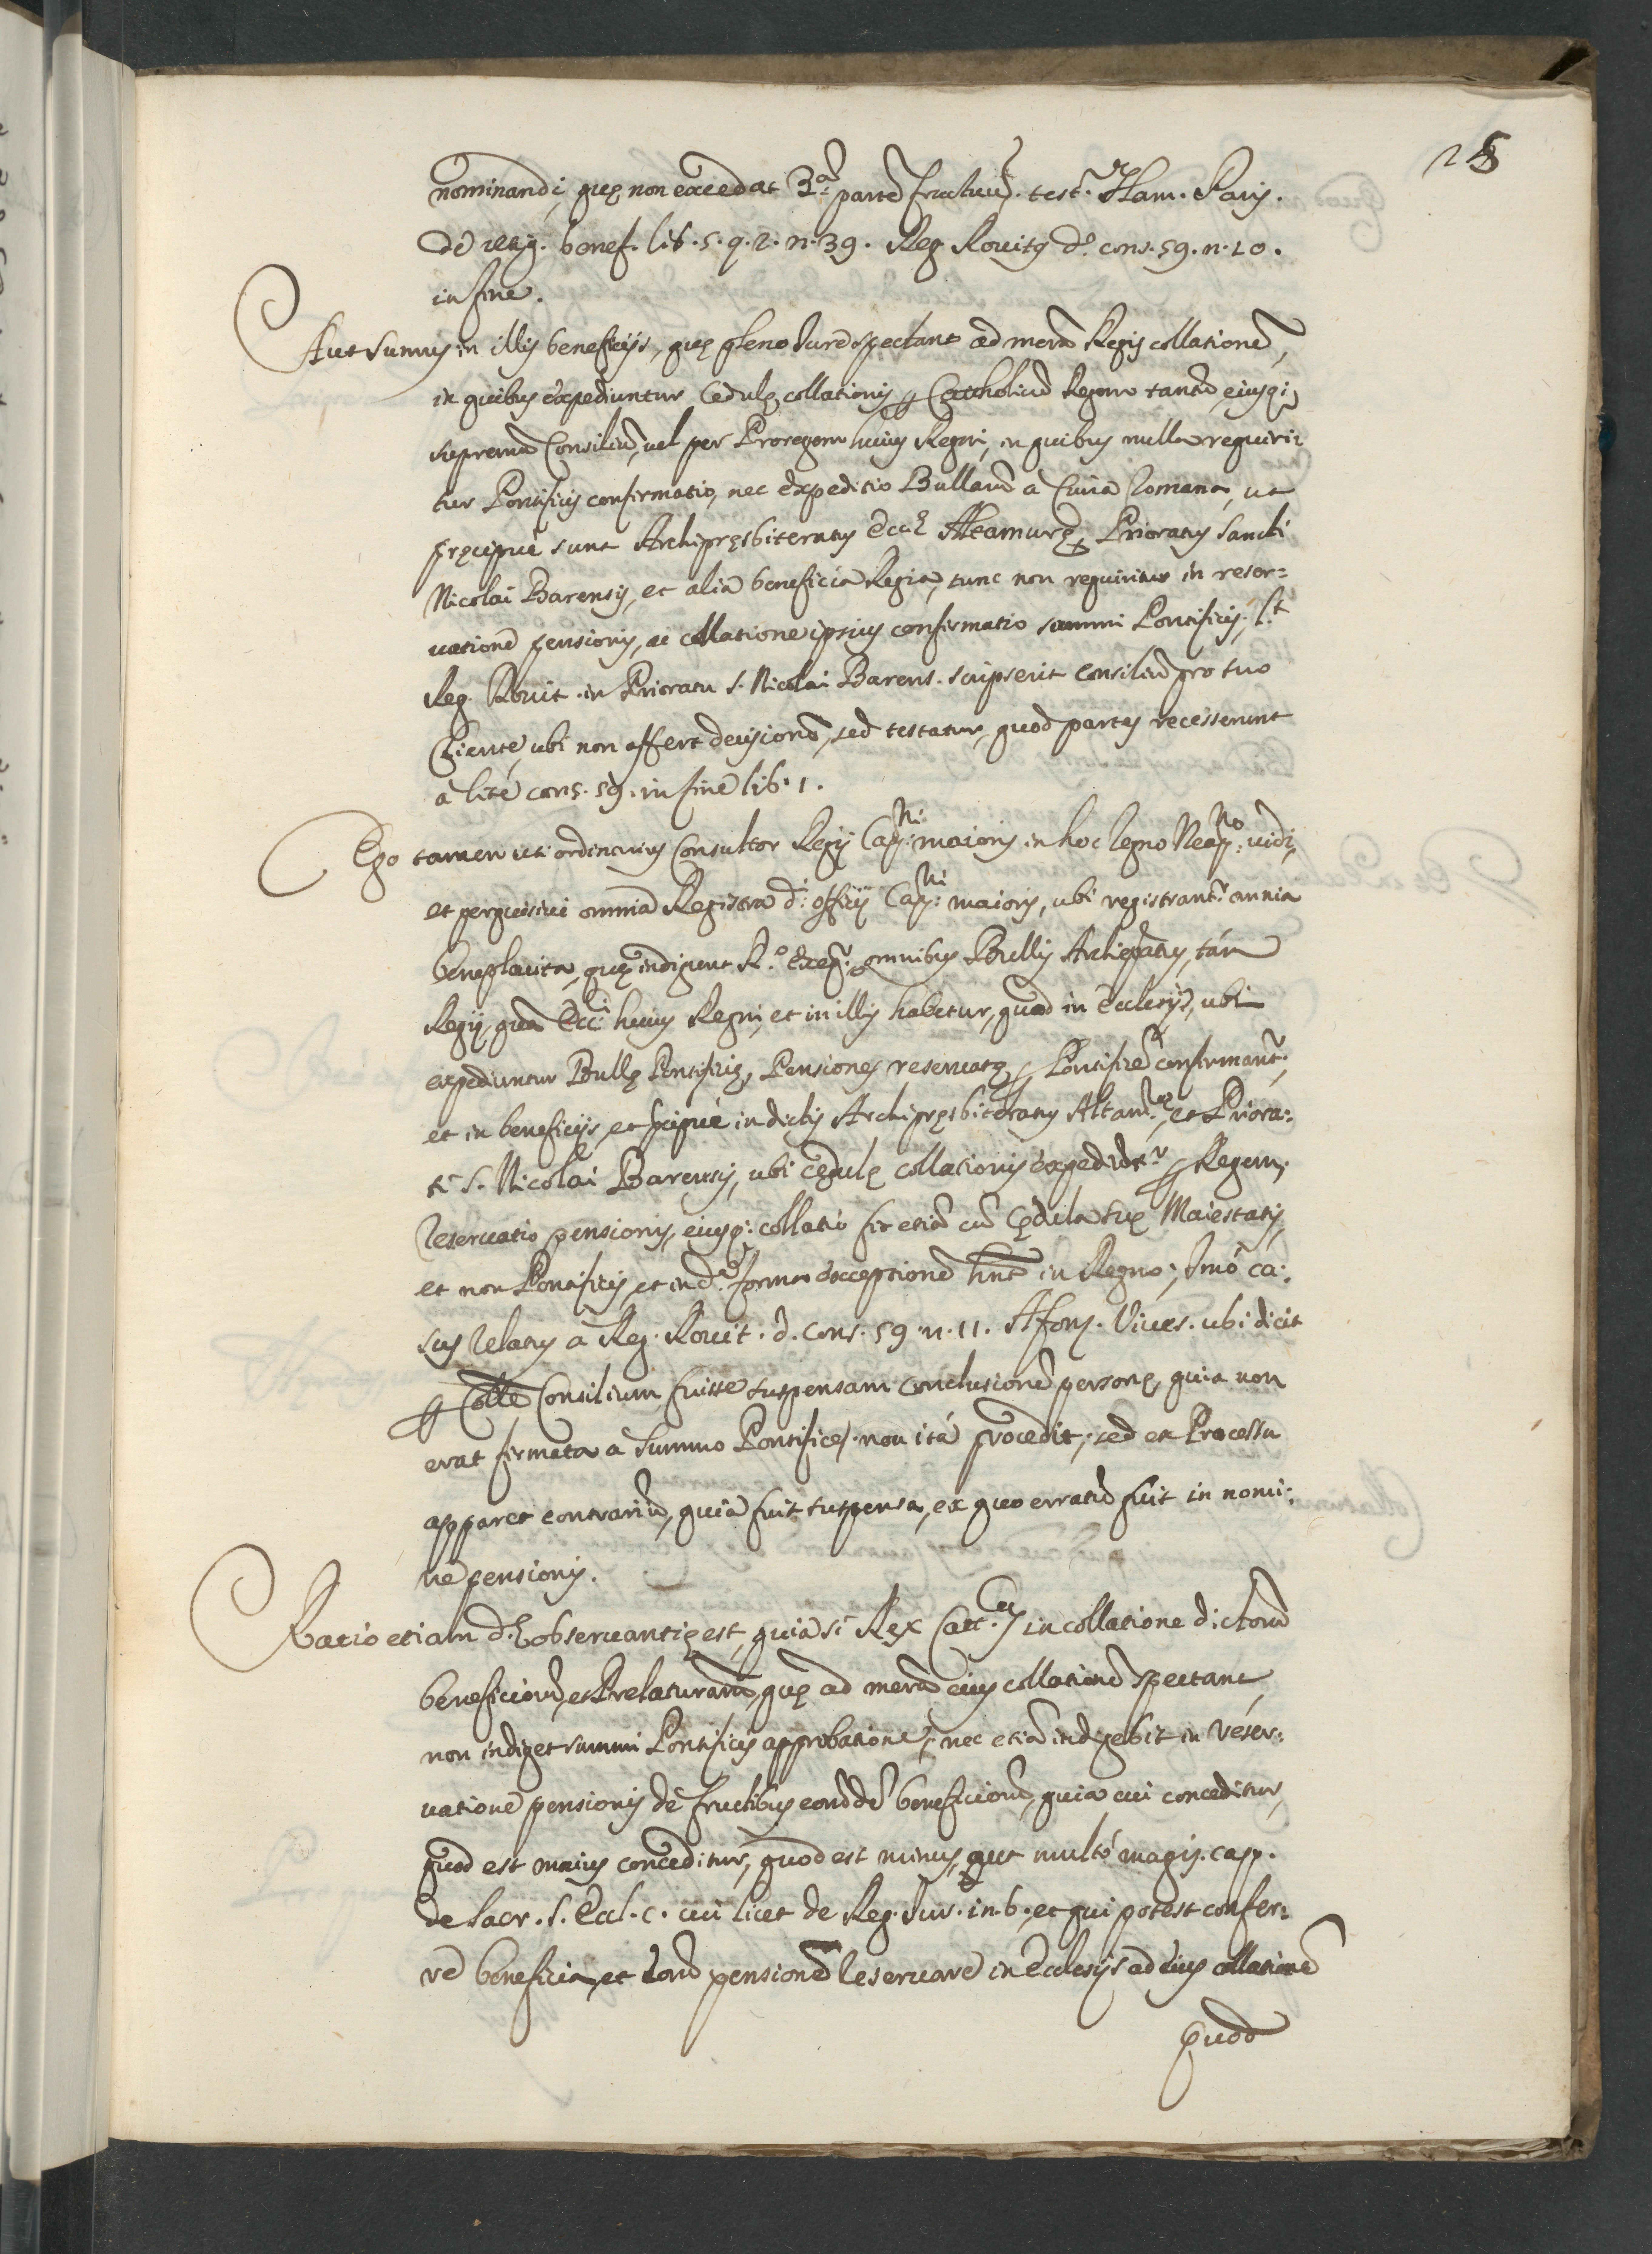 25
nominandi, quę non excedat 3.ã partẽ fructuũ. test. Flam. Paris.
de resig. benef. lib. 5. q. 2. n. 39. Reg. Rovitꝰ d.º cons. 59. n. 10.
in fine.
Aut sumus in illis beneficijs, quę pleno Jure spectant ad merã Regis collationẽ,
in quibus expediuntur Cedulę collationis ꝑ Catholicũ Regem tantũ, eiusq;
supremũ Consiliũ, vel per Proregem huius Regni, in quibus nulla requiri=
tur Pontificis confirmatio, nec expeditio Bullarũ a Curia Romana, ut
pręcipuè sunt Archipręsbiteratus Eccł Altamurę, Prioratus Sancti
Nicolai Barensis, et alia beneficia Regia, tunc non requiritur in reser=
vatione pensionis, ac collatione ipsius confirmatio summi Pontificis, l.t
Reg. Rovit. in Prioratu S. Nicolai Barens. scripserit consiliũ pro suo
Cliente, ubi non affert decisionẽ, sed testatur, quod partes recesserunt
à lite cons. 59. in fine lib. 1.
Ego tamen uti ordinarius Consultor Regij Cap:ni maioris in hoc Regno Neap:no vidi,
et perquisivi omnia Registra d.i officij Cap:ni maioris, ubi registrant.r omnia
beneplacita, quę indigent R.º Exeq.r omnibus Bullis Archiepatus, tàm
Regijs, quã Eccł: huius Regni, et in illis habetur, quod in Ecclesijs, ubi
expediuntur Bullę Pontificię, Pensiones reservatę ꝑ Pontificẽ confirmant.r,
et in beneficijs, et pręcipuè in dictis Archipręsbiteratus Altam.ę, et Priora:
tꝰ S. Nicolai Barensis, ubi cędulę collationis expediũt.r ꝑ Regem,
reservatio pensionis, eiusq; collatio fit etiã cũ cędula suę Maiestatis,
et non Pontificis, et in d.ª forma exceptionẽ hñt in Regno; Imò ca:
sus relatus a Reg. Rovit. d. cons. 59. n. 11. Alfons. Vives. ubi dicit
ꝑ Colle Consilium fuisse suspensam conclusionẽ personę, quia non
erat firmata a Summo Pontifice, non ità procedit, sed ex Processu
apparet contrariũ, quia fuit suspensa, ex quo erratũ fuit in nomi:
ne pensionis.
Ratio etiam d.ę observantię est, quia si Rex Catt.cus in collatione dictorũ
beneficiorũ, et Prelaturarũ, quę ad merã eius collationẽ spectant,
non indiget summi Pontificis approbatione, nec etiã indigebit in reser:
vatione pensionis de fructibus eorũdẽ beneficiorũ, quia cui conceditur,
quod est maius conceditur, quod est minus, aut multò magis. cap.
de Sacr. S. Eccl. c. cui licet de Reg. Jur. in 6., et qui potest confer:
re beneficia, et eorũ pensionẽ reservare in Ecclesijs ad eius collationẽ
quod